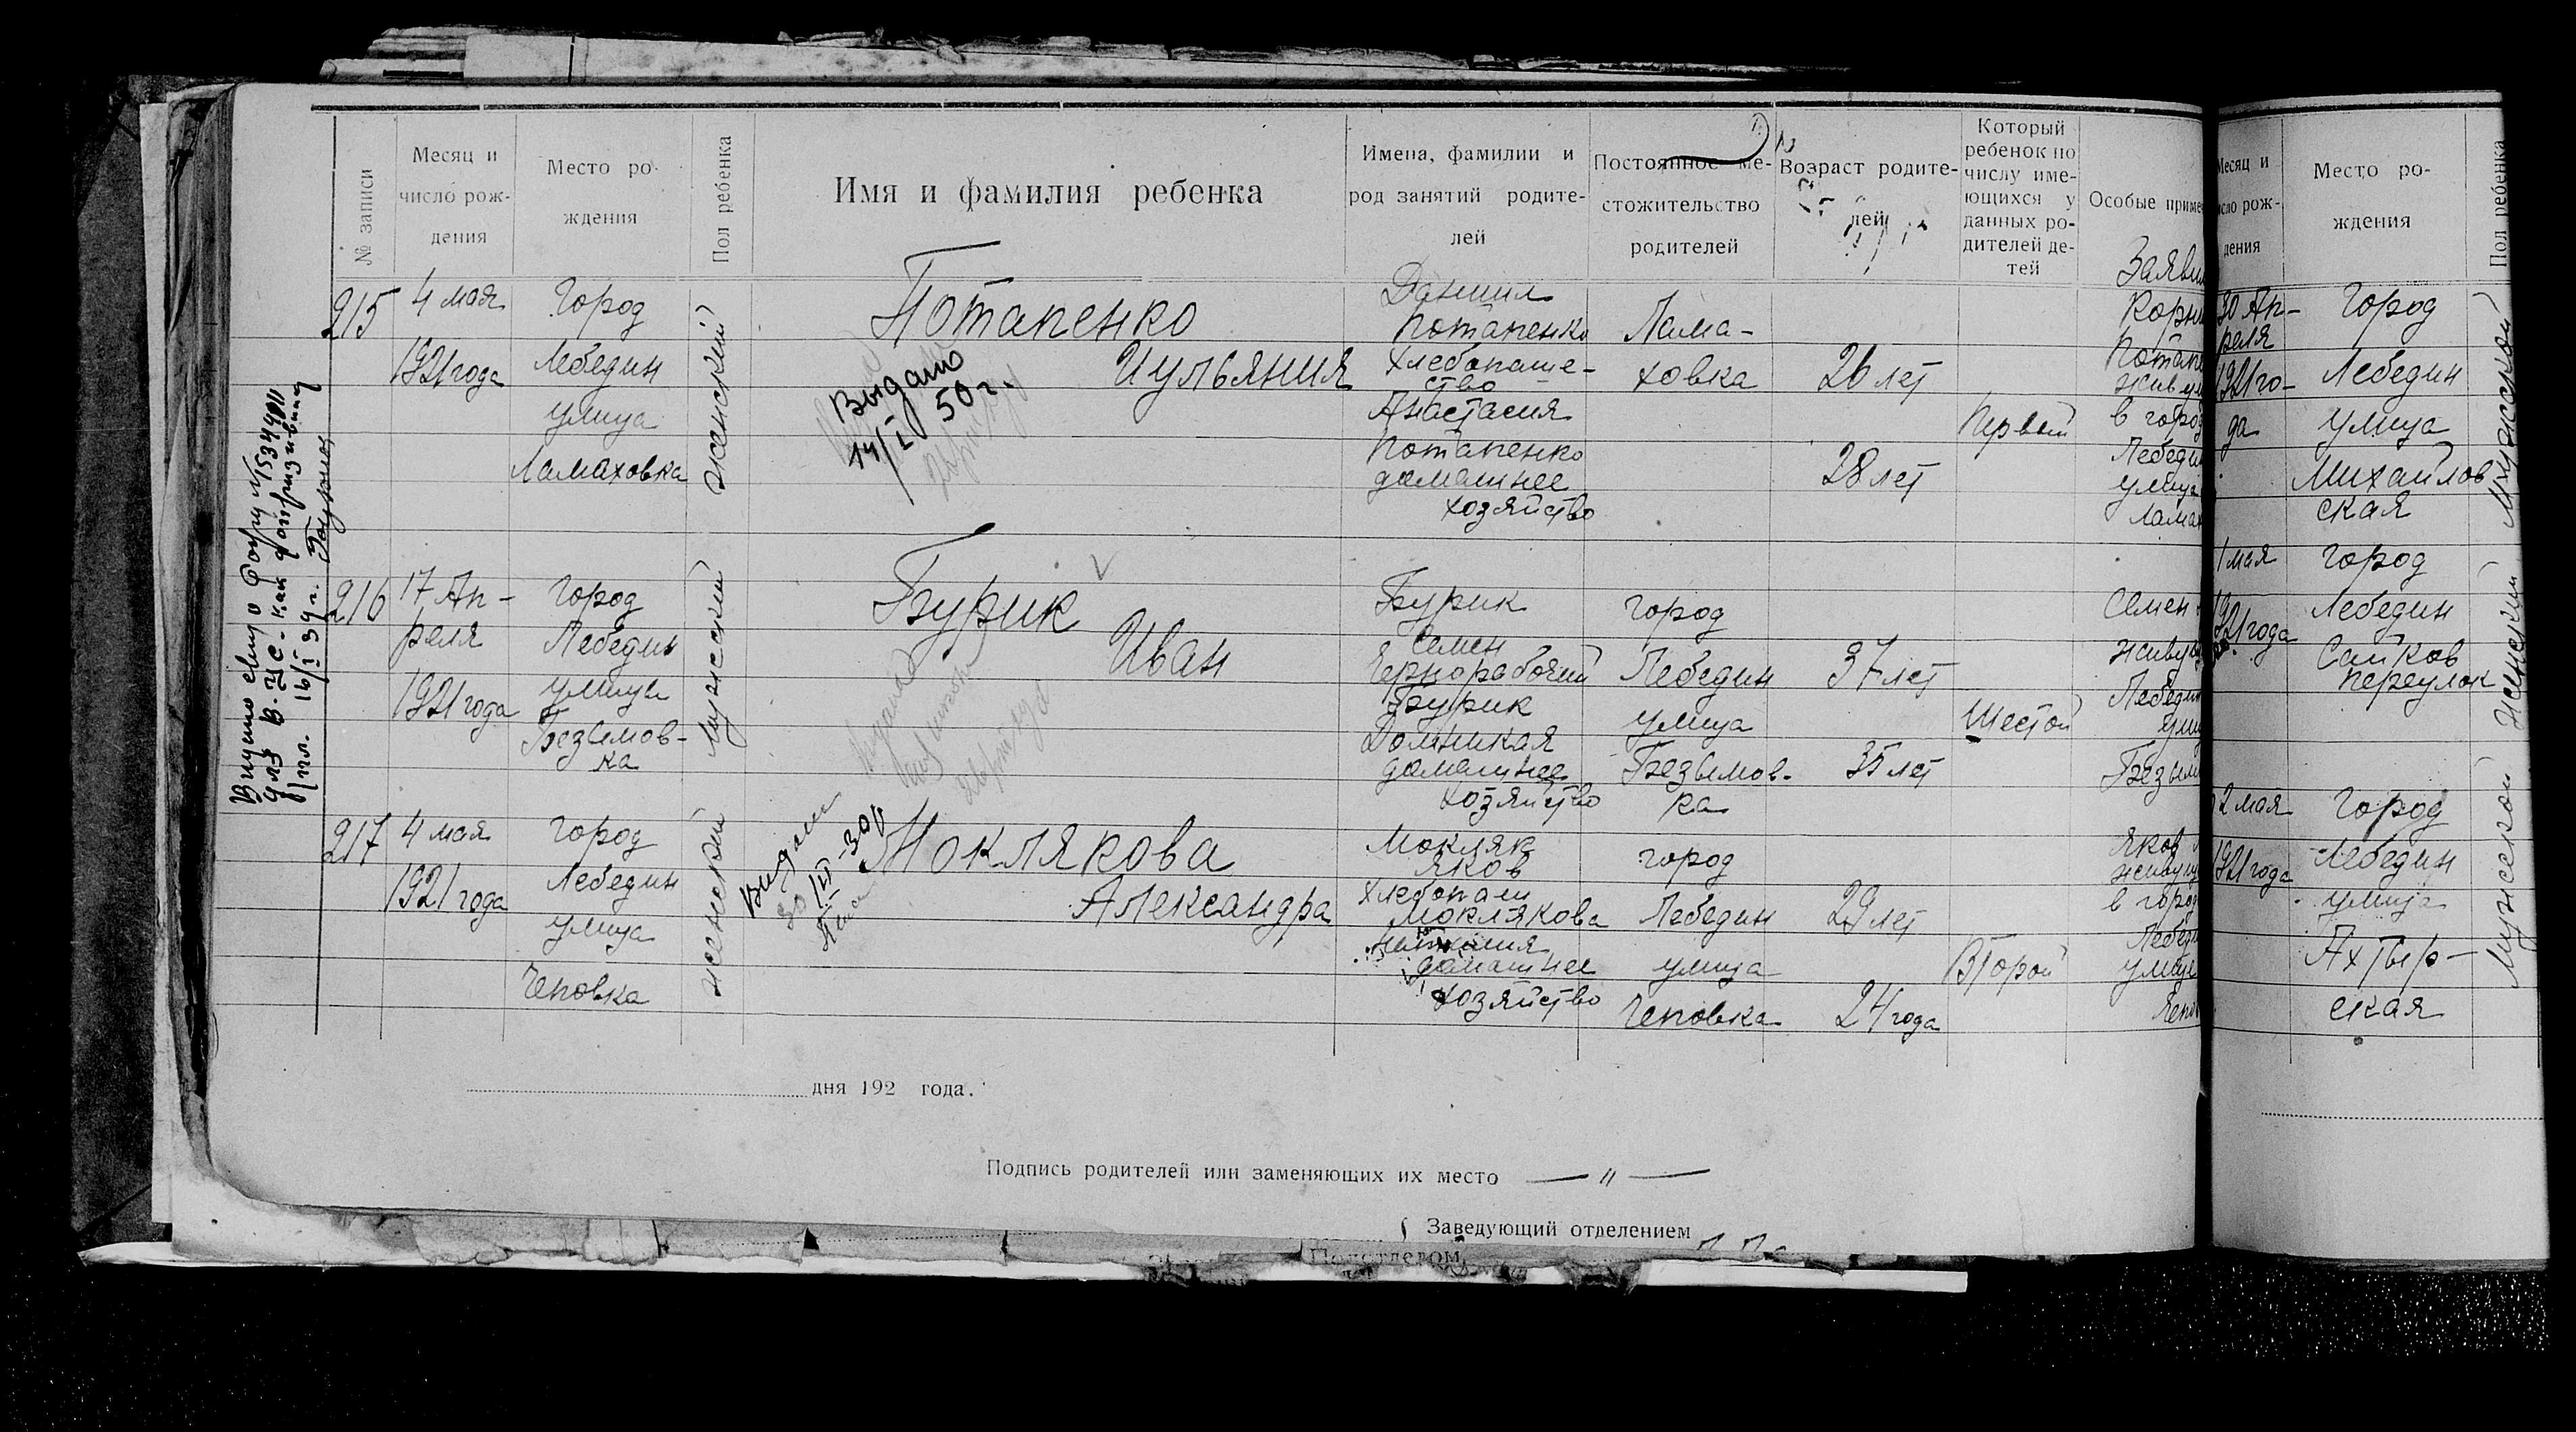 № записи
Месяц и
число рож-
дения
Место ро-
ждения
Пол ребенка
Имя и фамилия ребенка
Имена, фамилии и
род занятий родите-
лей
Постоянное ме-
стожительство
родителей
Возраст родите-
лей
Который
ребенок по
числу име-
ющихся у
данных ро-
дителей де-
тей
Особые приме
215
4 мая
1921 года
Город
Лебедин
улица
Ламаховка
женский
Потапенко
Иульяния
Выдано
14/I 50 г.
Даниил
Потапенко
хлебопаше-
ство
Анастасия
Потапенко
домашнее
хозяйство
Лама-
ховка
26 лет
28 лет
Первый
Заяви
Корн
Потапе
в город
Лебеди
улица
Ламах
216
17 Ап-
реля
1921 года
Город
Лебедин
улица
Безымов-
ка
мужский
Бурик
Иван
Бурик
Семен
Чернорабочий
Бурик
Домникая
домашнее
хозяйство
город
Лебедин
улица
Безымов-
ка
37 лет
35 лет
Шестой
Семен
живущ
Лебедин
ули
Безым
217
4 мая
1921 года
город
Лебедин
улица
Чеповка
женский
Моклякова
Александра
Мокляк
Яков
хлебопаш
Моклякова
домашнее
хозяйство
город
Лебедин
улица
Чеповка
29 лет
24 года
Второй
Яков
живущ
в город
Лебеди
улице
Чепо
дня 192 года.
Подпись родителей или заменяющих их место — " —
Заведующий отделением
Месяц и
исло рож-
дения
Место ро-
ждения
Пол ребенка
30 Ап-
реля
1921 го-
да
Город
Лебедин
улица
Михайлов
ская
мужской
1 мая
1921 года
город
Лебедин
Сайков
переулок
женский
2 мая
1921 года
город
Лебедин
улица
Ахтыр-
ская
мужской